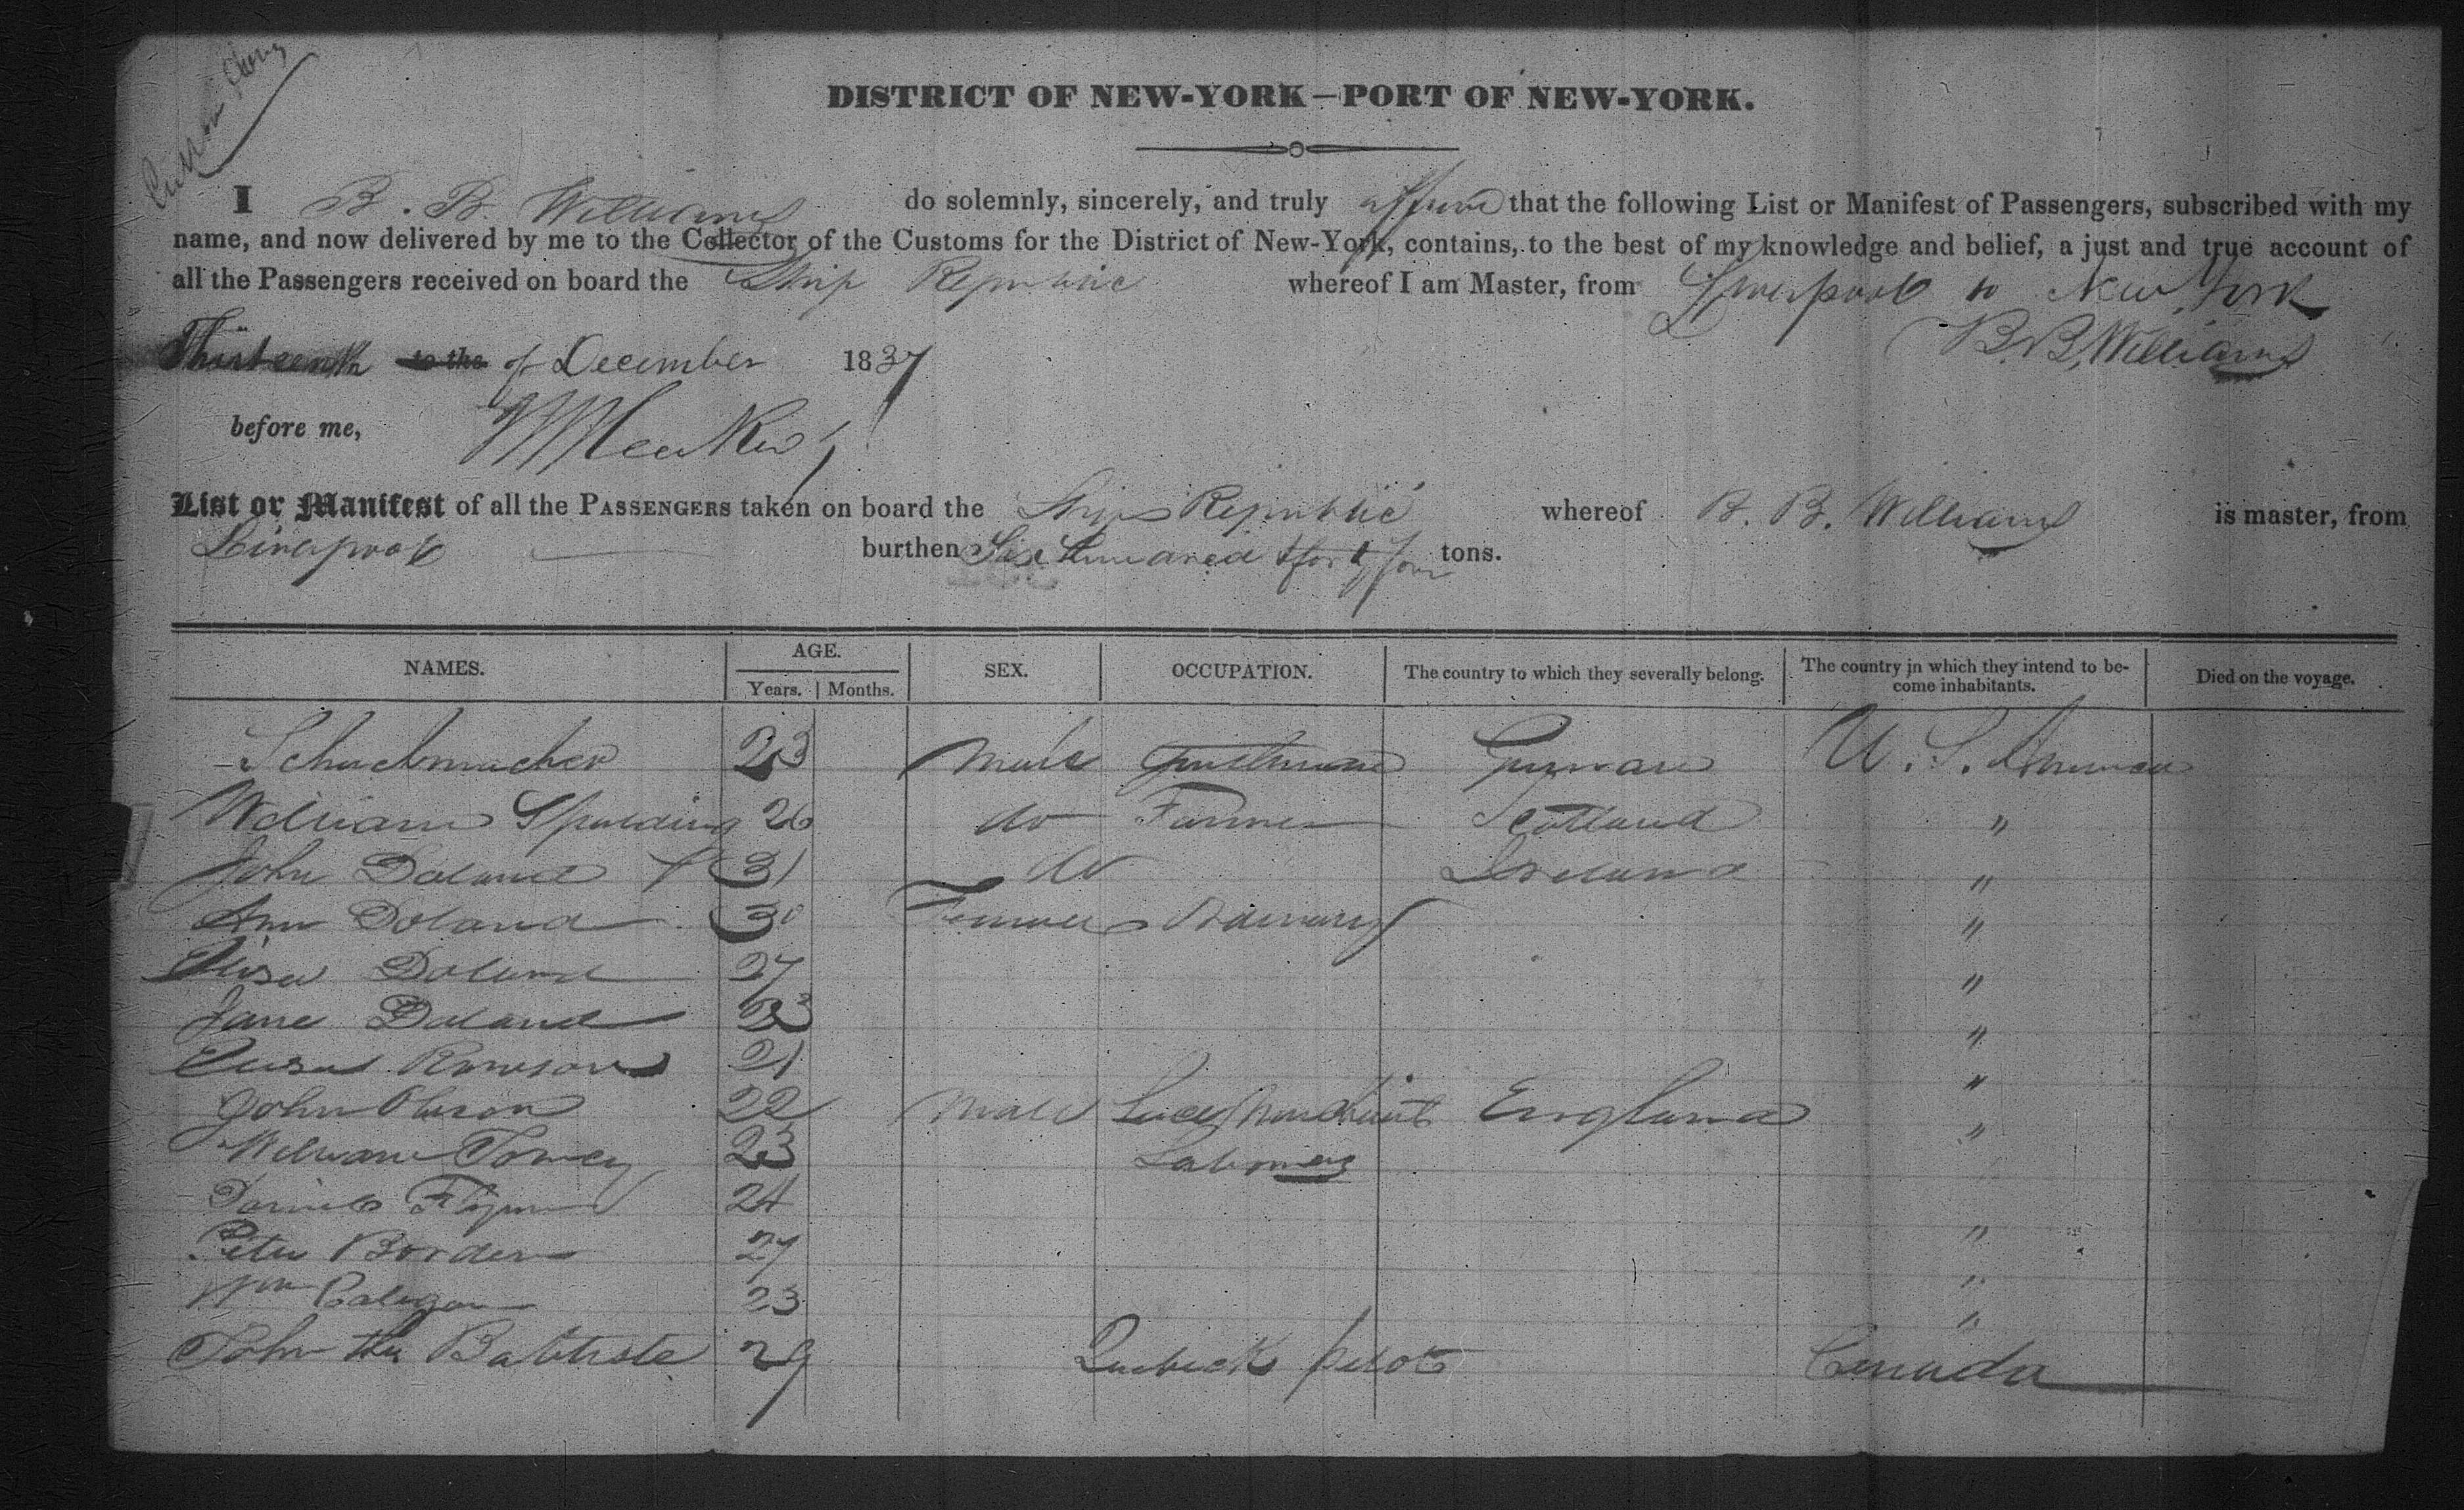 DISTRICT OF NEW-YORK—PORT OF NEW-YORK.
I B. B. Williams do solemnly, sincerely, and truly affirm that the following List or Manifest of Passengers, subscribed with my
name, and now delivered by me to the Collector of the Customs for the District of New-York, contains, to the best of my knowledge and belief, a just and true account of
all the Passengers received on board the Ship Republic whereof I am Master, from Liverpool to New York
B. B. Williams
Thirteenth to the of December 1837
before me,
List or Manifest of all the PASSENGERS taken on board the Ship Republic whereof B. B. Williams is master, from
Liverpool burthen Six hundred & forty four tons.
NAMES. AGE. SEX. OCCUPATION. The country to which they severally belong. The country in which they intend to be- Died on the voyage.
Years. Months. come inhabitants.
Schuchmacher 23 Male Gentleman U. S. America
William Spulding 26 do Farmer Scotland "
John Doland 31 do Ireland "
Ann Doland 30 Females "
Elisa Doland 27 "
Jane Doland 23 "
21 "
John 22 Male Merchant England "
William 23 Labourers
Daniel Flynn 24 "
Peter Borden 27 "
Wm 23 "
John the Babtiste 29 Quebeck pilot Canada